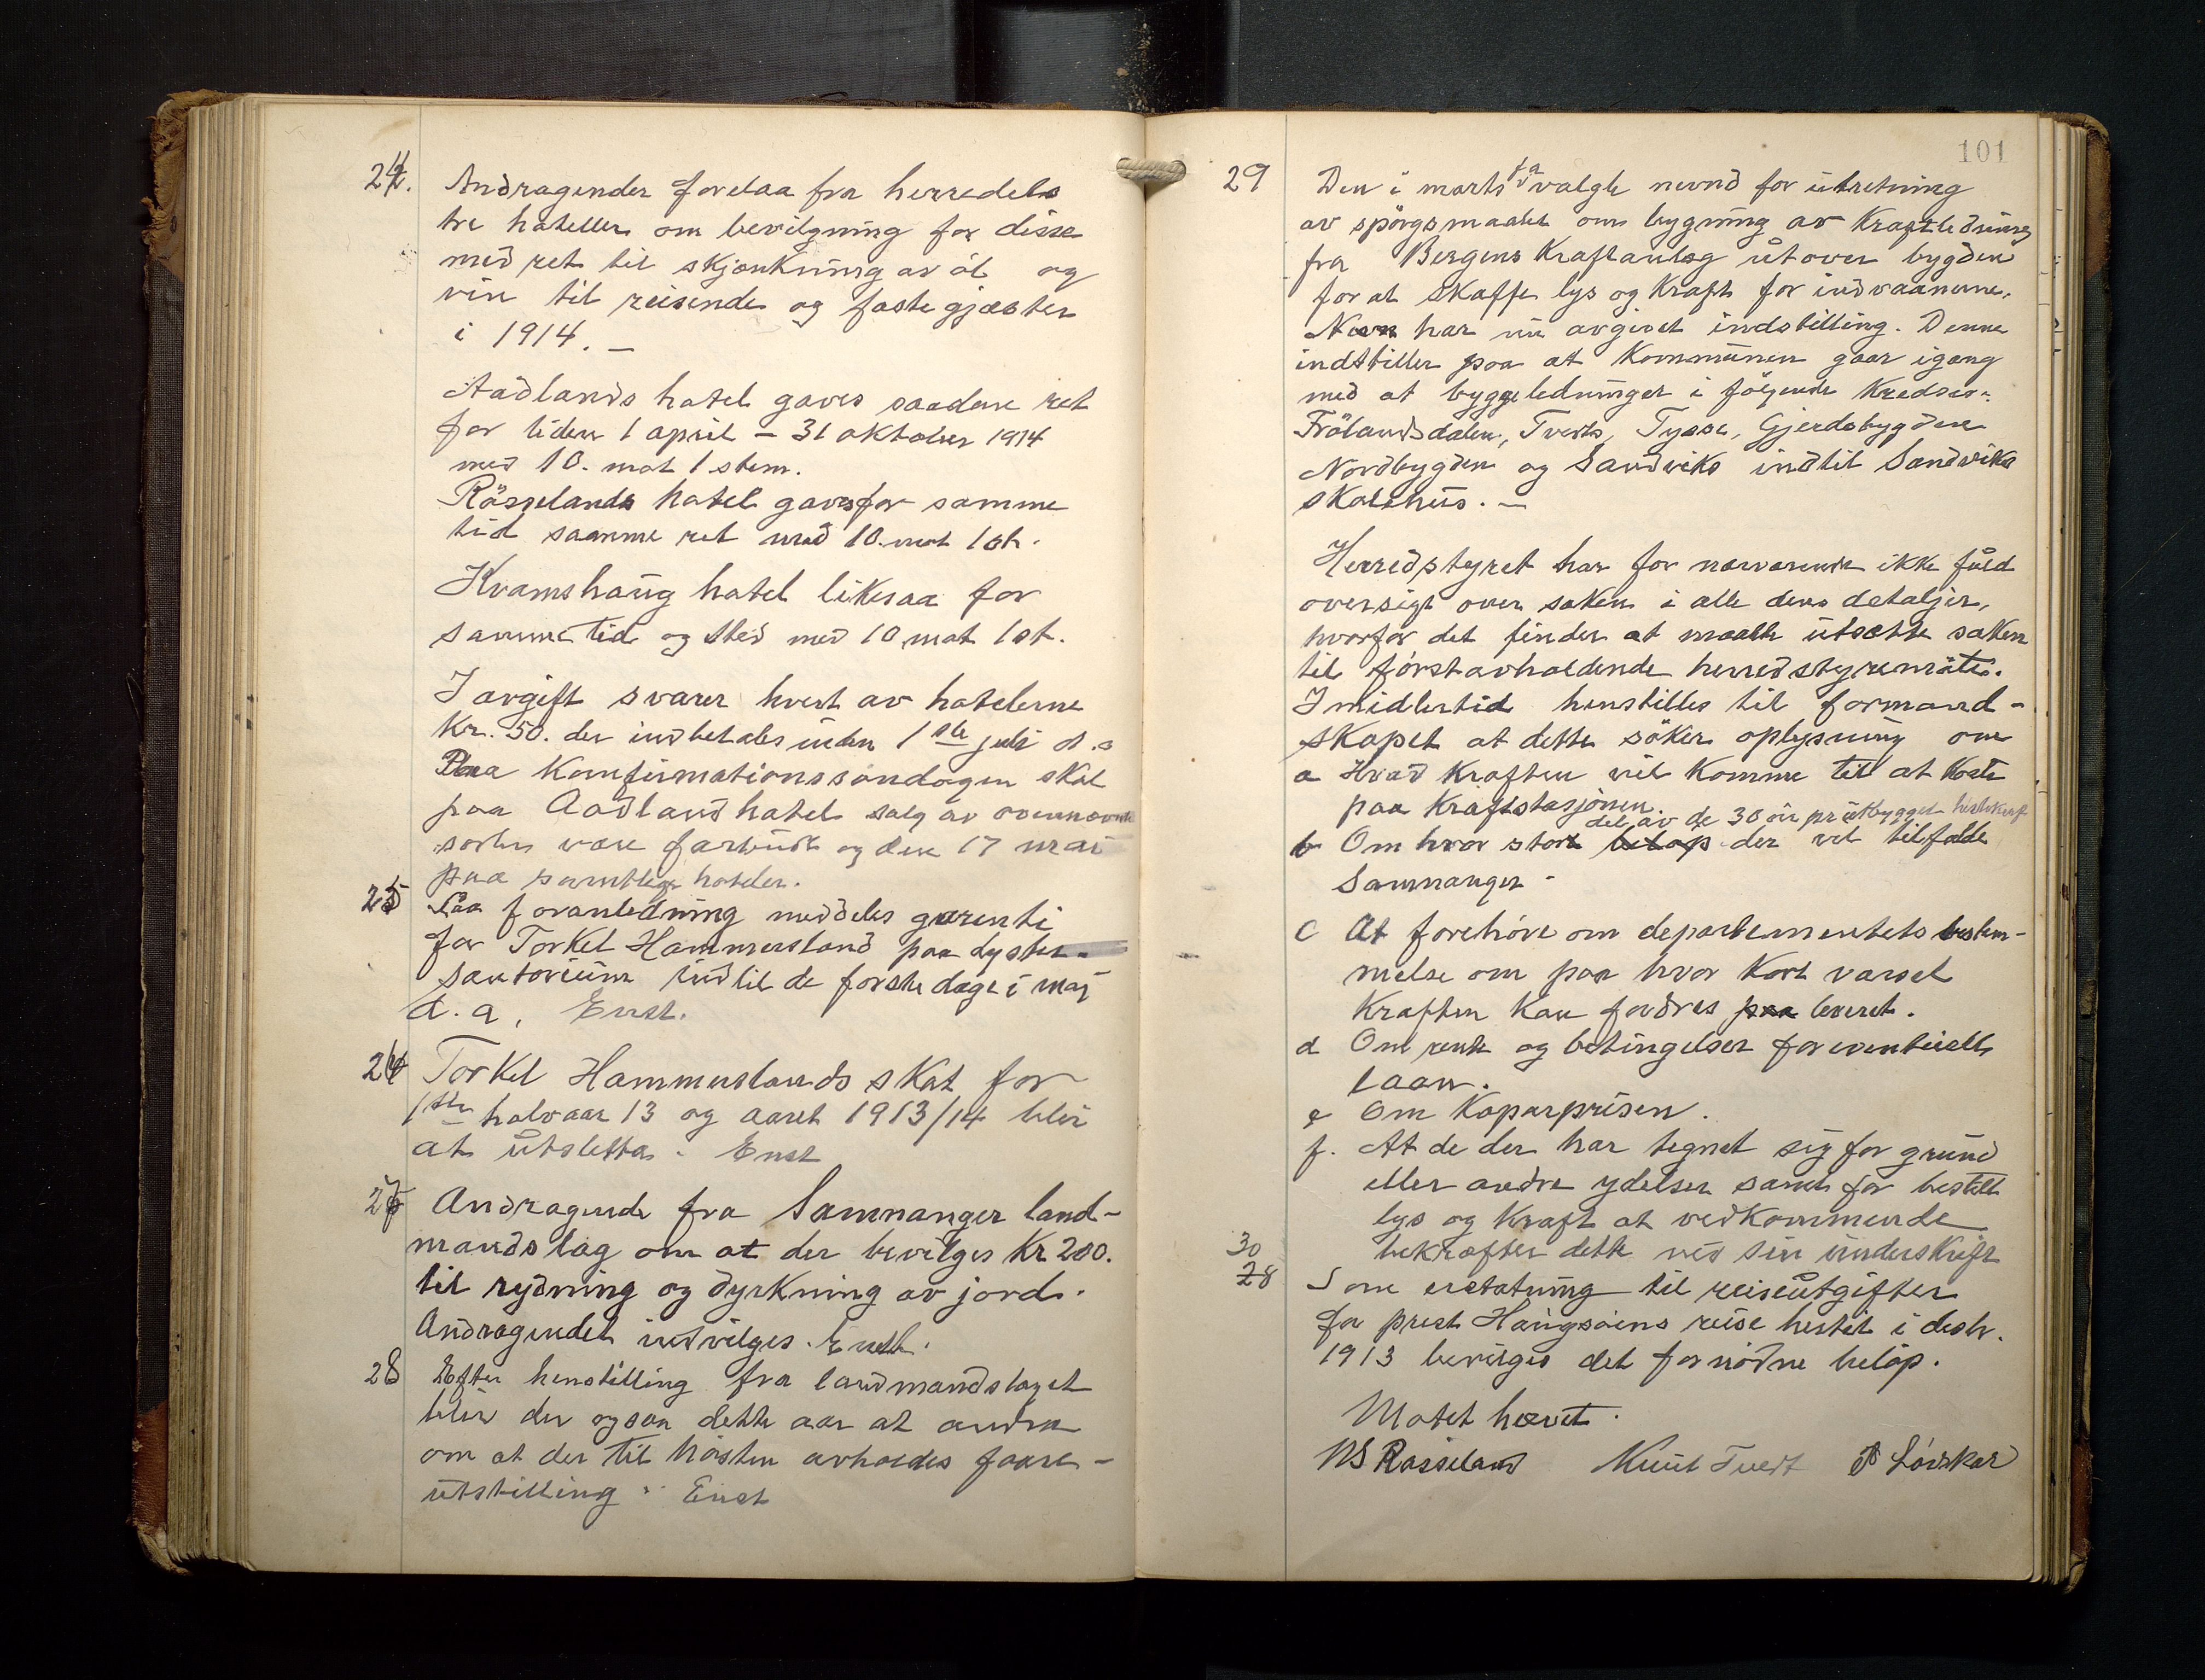 24. Andragender forelaa fra herredets
tre hoteller om bevilgning for disse
med ret til skjænkning av öl og
vin til reisende og faste gjæster
i 1914. —
Aadlands hotel gaves saadan ret
for tiden 1 april – 31 oktober 1914
med 10. mot 1 stem.
Rösselands hotel gaves for samme
tid saamme ret med 10. mot 1 st.
Kvamshaug hotel likesaa for
samme tid og sted med 10 mot 1 st.
I avgift svarer hvert av hotelerne
Kr. 50. der indbetales inden 1ste juli d.a
Paa Konfirmationssöndagen skal
paa Aadland hotel salg av ovennævnte
sorter være forbudt og den 17 mai
paa samtlige hoteler.
25 Paa foranledning meddeles garenti
for Torkel Hammersland paa Lyster
santorium indtil de förste dage i mai
d.a. Enst.
26 Torkel Hammerslands skat for
1ste halvaar 13 og aaret 1913/14 blir
at utslettes. Enst
27 Andragende fra Samnanger land-
mandslag om at der bevilges Kr 200.
til rydning og dyrkning av jord.
Andragendet indvilges. Enst.
28 Efter henstilling fra landmandslaget
blir der ogsaa dette aar at andra
om at der til hösten avholdes faare-
utstilling. Enst
101
29 Den i marts f a valgte nevnd for utretning
av spörgsmaalet om bygning av Kraftledning
fra Bergens Kraftanlæg utover bygden
for at skaffe lys og Kraft for indvaanerne.
Nevn har nu avgivet indstilling. Denne
indstiller paa at Kommunen gaar igang
med at bygge ledninger i fölgende Kredser:
Frölandsdalen, Tveits, Tysse, Gjerdsbygden
Nordbygden og Sandviks indtil Sandviks
skolehus. —
Herredstyret har for nærværende ikke fuld
oversigt over saken i alle dens detaljer,
hvorfor det finder at maatte utsætte saken
til först avholdende herredstyremöte.
Imidlertid henstilles til formand-
skapet at dette söker oplysning om
a Hvad Kraften vil komme til at koste
paa Kraftstasjonen.
del av de 30 öre pr utbygget hestekraft
b Om hvor stor belöp der vil tilfalde
Samnanger
c At forehöre om departementets bestem-
melse om paa hvor kort varsel
Kraften kan fordres paa leveret.
d Om rente og betingelser for eventuelt
laan.
e Om Koparprisen.
f. At de der har tegnet sig for grund
eller andre ydelser samt for bestelt
lys og Kraft at vedkommende
bekræfter dette ved sin underskrift
30
28 Som erstatning til reiseutgifter
for prest Haugsöens reise hertil i desbr.
1913 bevilges det fornödne belöp.
Motet hevet.
NS Rösseland Knut Tveit